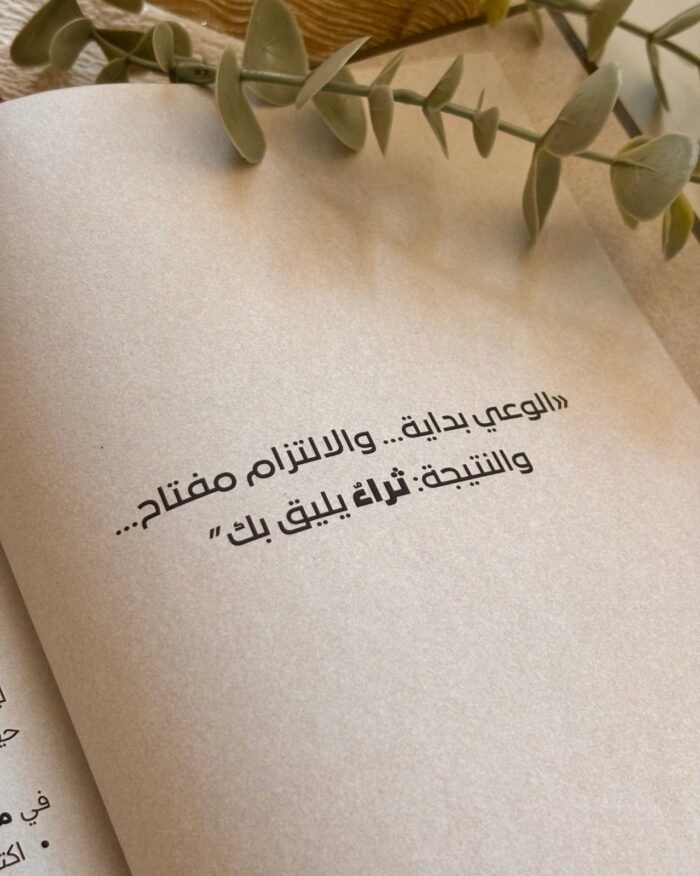 «الوعي بداية... والالتزام مفتاح...
والنتيجة: ثراءٌ يليق بك"
في